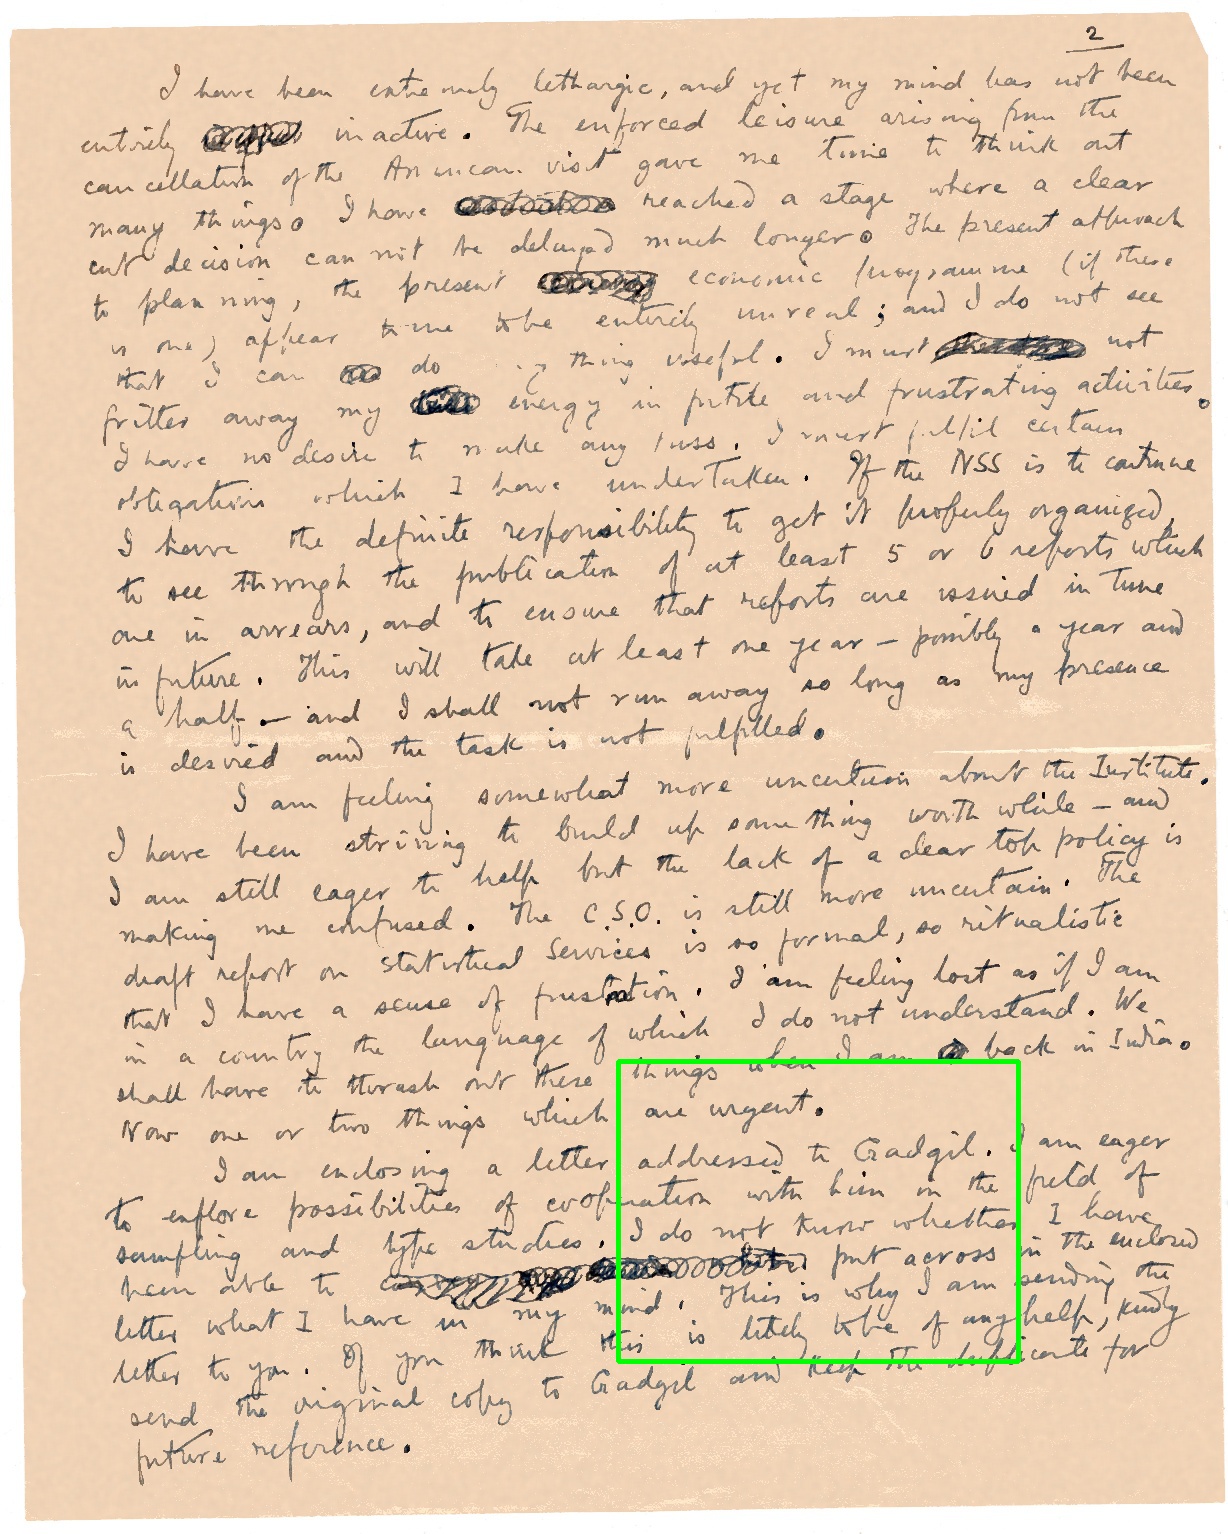 2
I have been extremely lethargic, and yet my mind has not been
entirely inactive. The enforced leisure arising from the
cancellation of the American visit gave me time to think out
many things. I have reached a stage where a clear
cut decision can not be delayed much longer. The present approach
to planning, the present economic programme (if there
is one) appear to me to be entirely unreal; and I do not see
that I can do any thing useful. I must not
fritter away my energy in futile and frustrating activities.
I have no desire to make any fuss. I must fulfil certain
obligations which I have undertaken. If the NSS is to continue
I have the definite responsibility to get it properly organized,
to see through the publication of at least 5 or 6 reports which
are in arrears, and to ensure that reports are issued in time
in future. This will take at least one year – possibly a year and
a half – and I shall not run away so long as my presence
is desired and the task is not fulfilled.
I am feeling somewhat more uncertain about the Institute.
I have been striving to build up something worth while – and
I am still eager to help but the lack of a clear top policy is
making me confused. The C.S.O. is still more uncertain. The
draft report on Statistical Services is so formal, so ritualistic
that I have a sense of frustration. I am feeling lost as if I am
in a country the language of which I do not understand. We
shall have to thrash out these things when I am back in India.
Now one or two things which are urgent.
I am enclosing a letter addressed to Gadgil. I am eager
to explore possibilities of cooperation with him in the field of
sampling and type studies. I do not know whether I have
been able to put across in the enclosed
letter what I have in my mind. This is why I am sending the
letter to you. If you think this is likely to be of any help, kindly
send the original copy to Gadgil and keep the duplicate for
future reference.